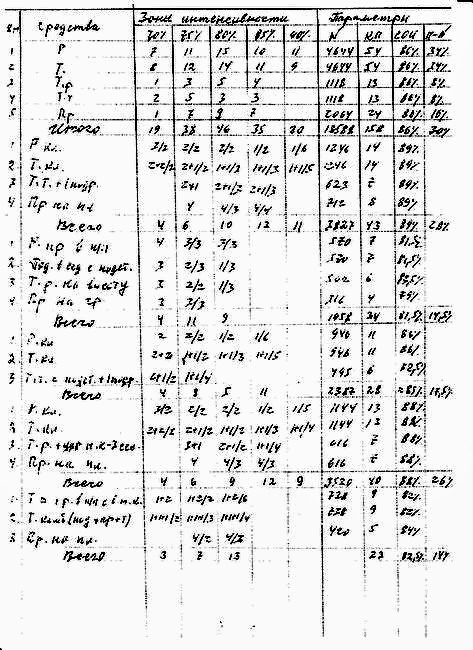 Средства Зоны интенсивности Параметры
70% 75% 80% 85% 90% N КП СОИ
1 Р 7 11 15 10 11 4644 54 86% 34%
2 Т. 8 12 14 11 9 4644 54 86% 34%
3 Т.р 1 3 5 4 1118 13 86% 8%
4 Т.т 2 5 3 3 1118 13 86% 8%
5 Пр 1 7 9 7 2064 24 86%
Итого 19 38 46 35 20 158 86%
1 Р. кл. 3/2 2/2 2/2 1/2 1/6 1246 14 89%
2 Т. кл. 2+2/2 2+1/2 1+1/3 1+1/3 1+1/5 1246 14 89%
3 2+1 2+1/2 2+1/3 623 7 89%
4 Пр на пл 4 4/3 4/4 712 8 89%
Всего 4 6 10 12 11 3827 43 89% 28%
1 4 3/3 3/3 570 7 81,5%
2 3 2/3 1/3 570 7 81,5%
3 Т. р. на высоту 3 2/2 1/3 502 6
4 Пр на гр 3 3/3 316 4 79%
Всего 4 11 9 1958 24 81,5% 14,5%
1 Р. кл 2 2/2 1/2 1/6 946 11 86%
2 Т. кл. 2+2 1+1/2 1+1/3 1+1/5 946 11 86%
3 2+1/2 1+1/4 495 6 82,5%
Всего 4 8 5 11 2387 28 85%
1 Р. кл. 3/2 2/2 2/2 1/2 1/5 1144 13 88%
2 Т. кл. 2+2/2 2+1/2 1+1/2 1+1/3 1+1/4 1144 13 88%
3 3+1 2+1/2 1+1/4 616 7 88%
4 Пр. на пл. 4 4/3 4/3 616 7 88%
Всего 4 6 9 12 9 3520 40 88% 26%
1 1+2 1+2/2 1+2/6 738 9 82%
2 1+1+1/2 1+1+1/3 1+1+1/4 738 9 82%
3 Пр. на пл. 4/2 4/3 420 5 84%
Всего 3 7 13 23 82,5% 14%